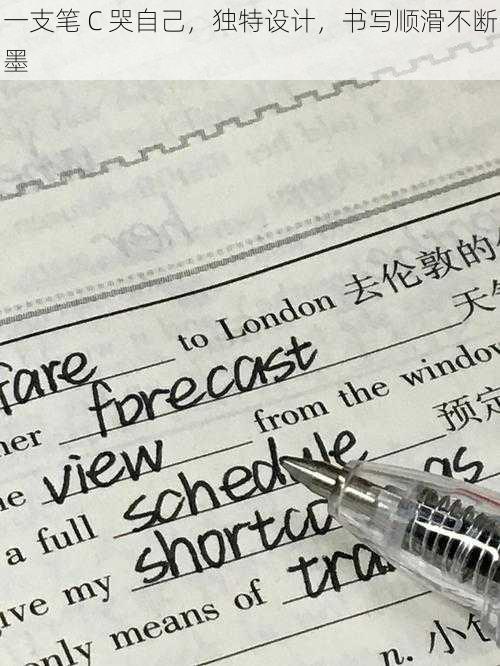 一支笔 C 哭自己，独特设计，书写顺滑不断
墨
fare to London 去伦敦的
forecast 天
view from the window
a full schedule 预定
my
only means of
n. 小